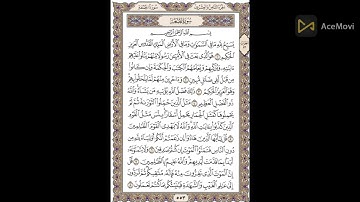 AceMovi
سُورَةُ الجُمُعَةِ
الجُزْءُ الثَّامِنُ وَالعِشْرُونَ
سُورَةُ الجُمُعَةِ
بِسْمِ اللَّهِ الرَّحْمَٰنِ الرَّحِيمِ
يُسَبِّحُ لِلَّهِ مَا فِي السَّمَٰوَٰتِ وَمَا فِي الْأَرْضِ الْمَلِكِ الْقُدُّوسِ الْعَزِيزِ
الْحَكِيمِ ١ هُوَ الَّذِي بَعَثَ فِي الْأُمِّيِّينَ رَسُولًا مِّنْهُمْ يَتْلُوا عَلَيْهِمْ
ءَايَٰتِهِ وَيُزَكِّيهِمْ وَيُعَلِّمُهُمُ الْكِتَٰبَ وَالْحِكْمَةَ وَإِن كَانُوا
مِن قَبْلُ لَفِي ضَلَٰلٍ مُّبِينٍ ٢ وَءَاخَرِينَ مِنْهُمْ لَمَّا يَلْحَقُوا بِهِمْ
وَهُوَ الْعَزِيزُ الْحَكِيمُ ٣ ذَٰلِكَ فَضْلُ اللَّهِ يُؤْتِيهِ مَن يَشَاءُ وَاللَّهُ
ذُو الْفَضْلِ الْعَظِيمِ ٤ مَثَلُ الَّذِينَ حُمِّلُوا التَّوْرَىٰةَ ثُمَّ لَمْ
يَحْمِلُوهَا كَمَثَلِ الْحِمَارِ يَحْمِلُ أَسْفَارًا بِئْسَ مَثَلُ الْقَوْمِ
الَّذِينَ كَذَّبُوا بِـَٔايَٰتِ اللَّهِ وَاللَّهُ لَا يَهْدِي الْقَوْمَ الظَّٰلِمِينَ ٥
قُلْ يَٰٓأَيُّهَا الَّذِينَ هَادُوا إِن زَعَمْتُمْ أَنَّكُمْ أَوْلِيَاءُ لِلَّهِ مِن
دُونِ النَّاسِ فَتَمَنَّوُا الْمَوْتَ إِن كُنتُمْ صَٰدِقِينَ ٦ وَلَا يَتَمَنَّوْنَهُ
أَبَدًا بِمَا قَدَّمَتْ أَيْدِيهِمْ وَاللَّهُ عَلِيمٌ بِالظَّٰلِمِينَ ٧ قُلْ
إِنَّ الْمَوْتَ الَّذِي تَفِرُّونَ مِنْهُ فَإِنَّهُ مُلَٰقِيكُمْ ثُمَّ تُرَدُّونَ
إِلَىٰ عَٰلِمِ الْغَيْبِ وَالشَّهَٰدَةِ فَيُنَبِّئُكُم بِمَا كُنتُمْ تَعْمَلُونَ ٨
٥٥٣